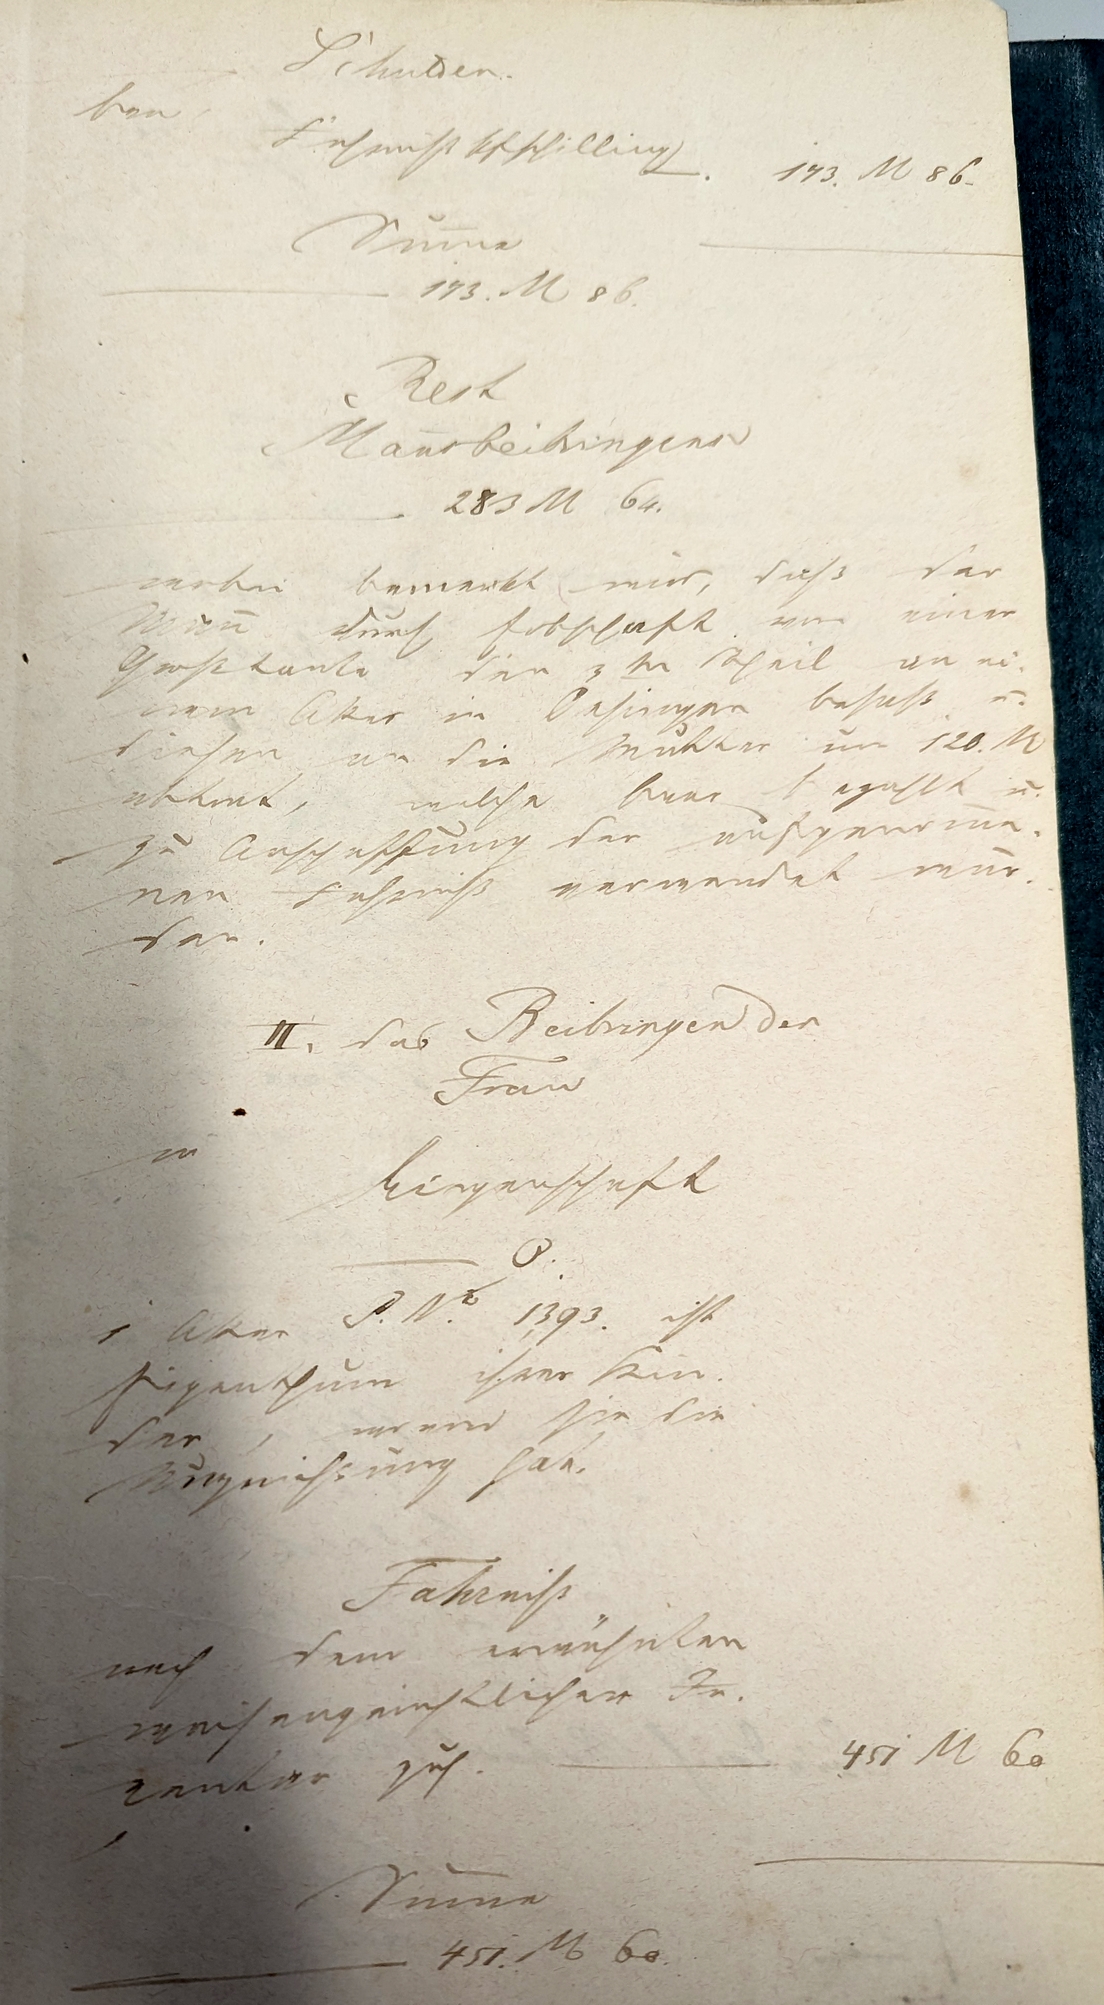 Schulden.
Fahrnißkfschilling. 173. M 86.
Summe
173. M 86.
Rest
Mannsbeibringens
283 M 64.
wobei bemerkt wird, daß der
Mann durch Erbschaft von einer
Großtante den 3ten Theil an ei-
nem Aker in Ofingen besaß u.
diesen an die Mutter um 120. M
abtrat, welche baar bezahlt u.
zu Anschaffung der aufgenomme-
nen Fahrniß verwendet wur-
den.
II. das Beibringen der
Frau
in
Liegenschaft
0.
Aker P. No. 1393. ist
Eigenthum ihrer Kin-
der, woran sie die
Nutznießung hat.
Fahrniß
nach dem erwähnten
waisengerichtlichen In-
ventar zus. 451 M 60
Summe
451. M 60.